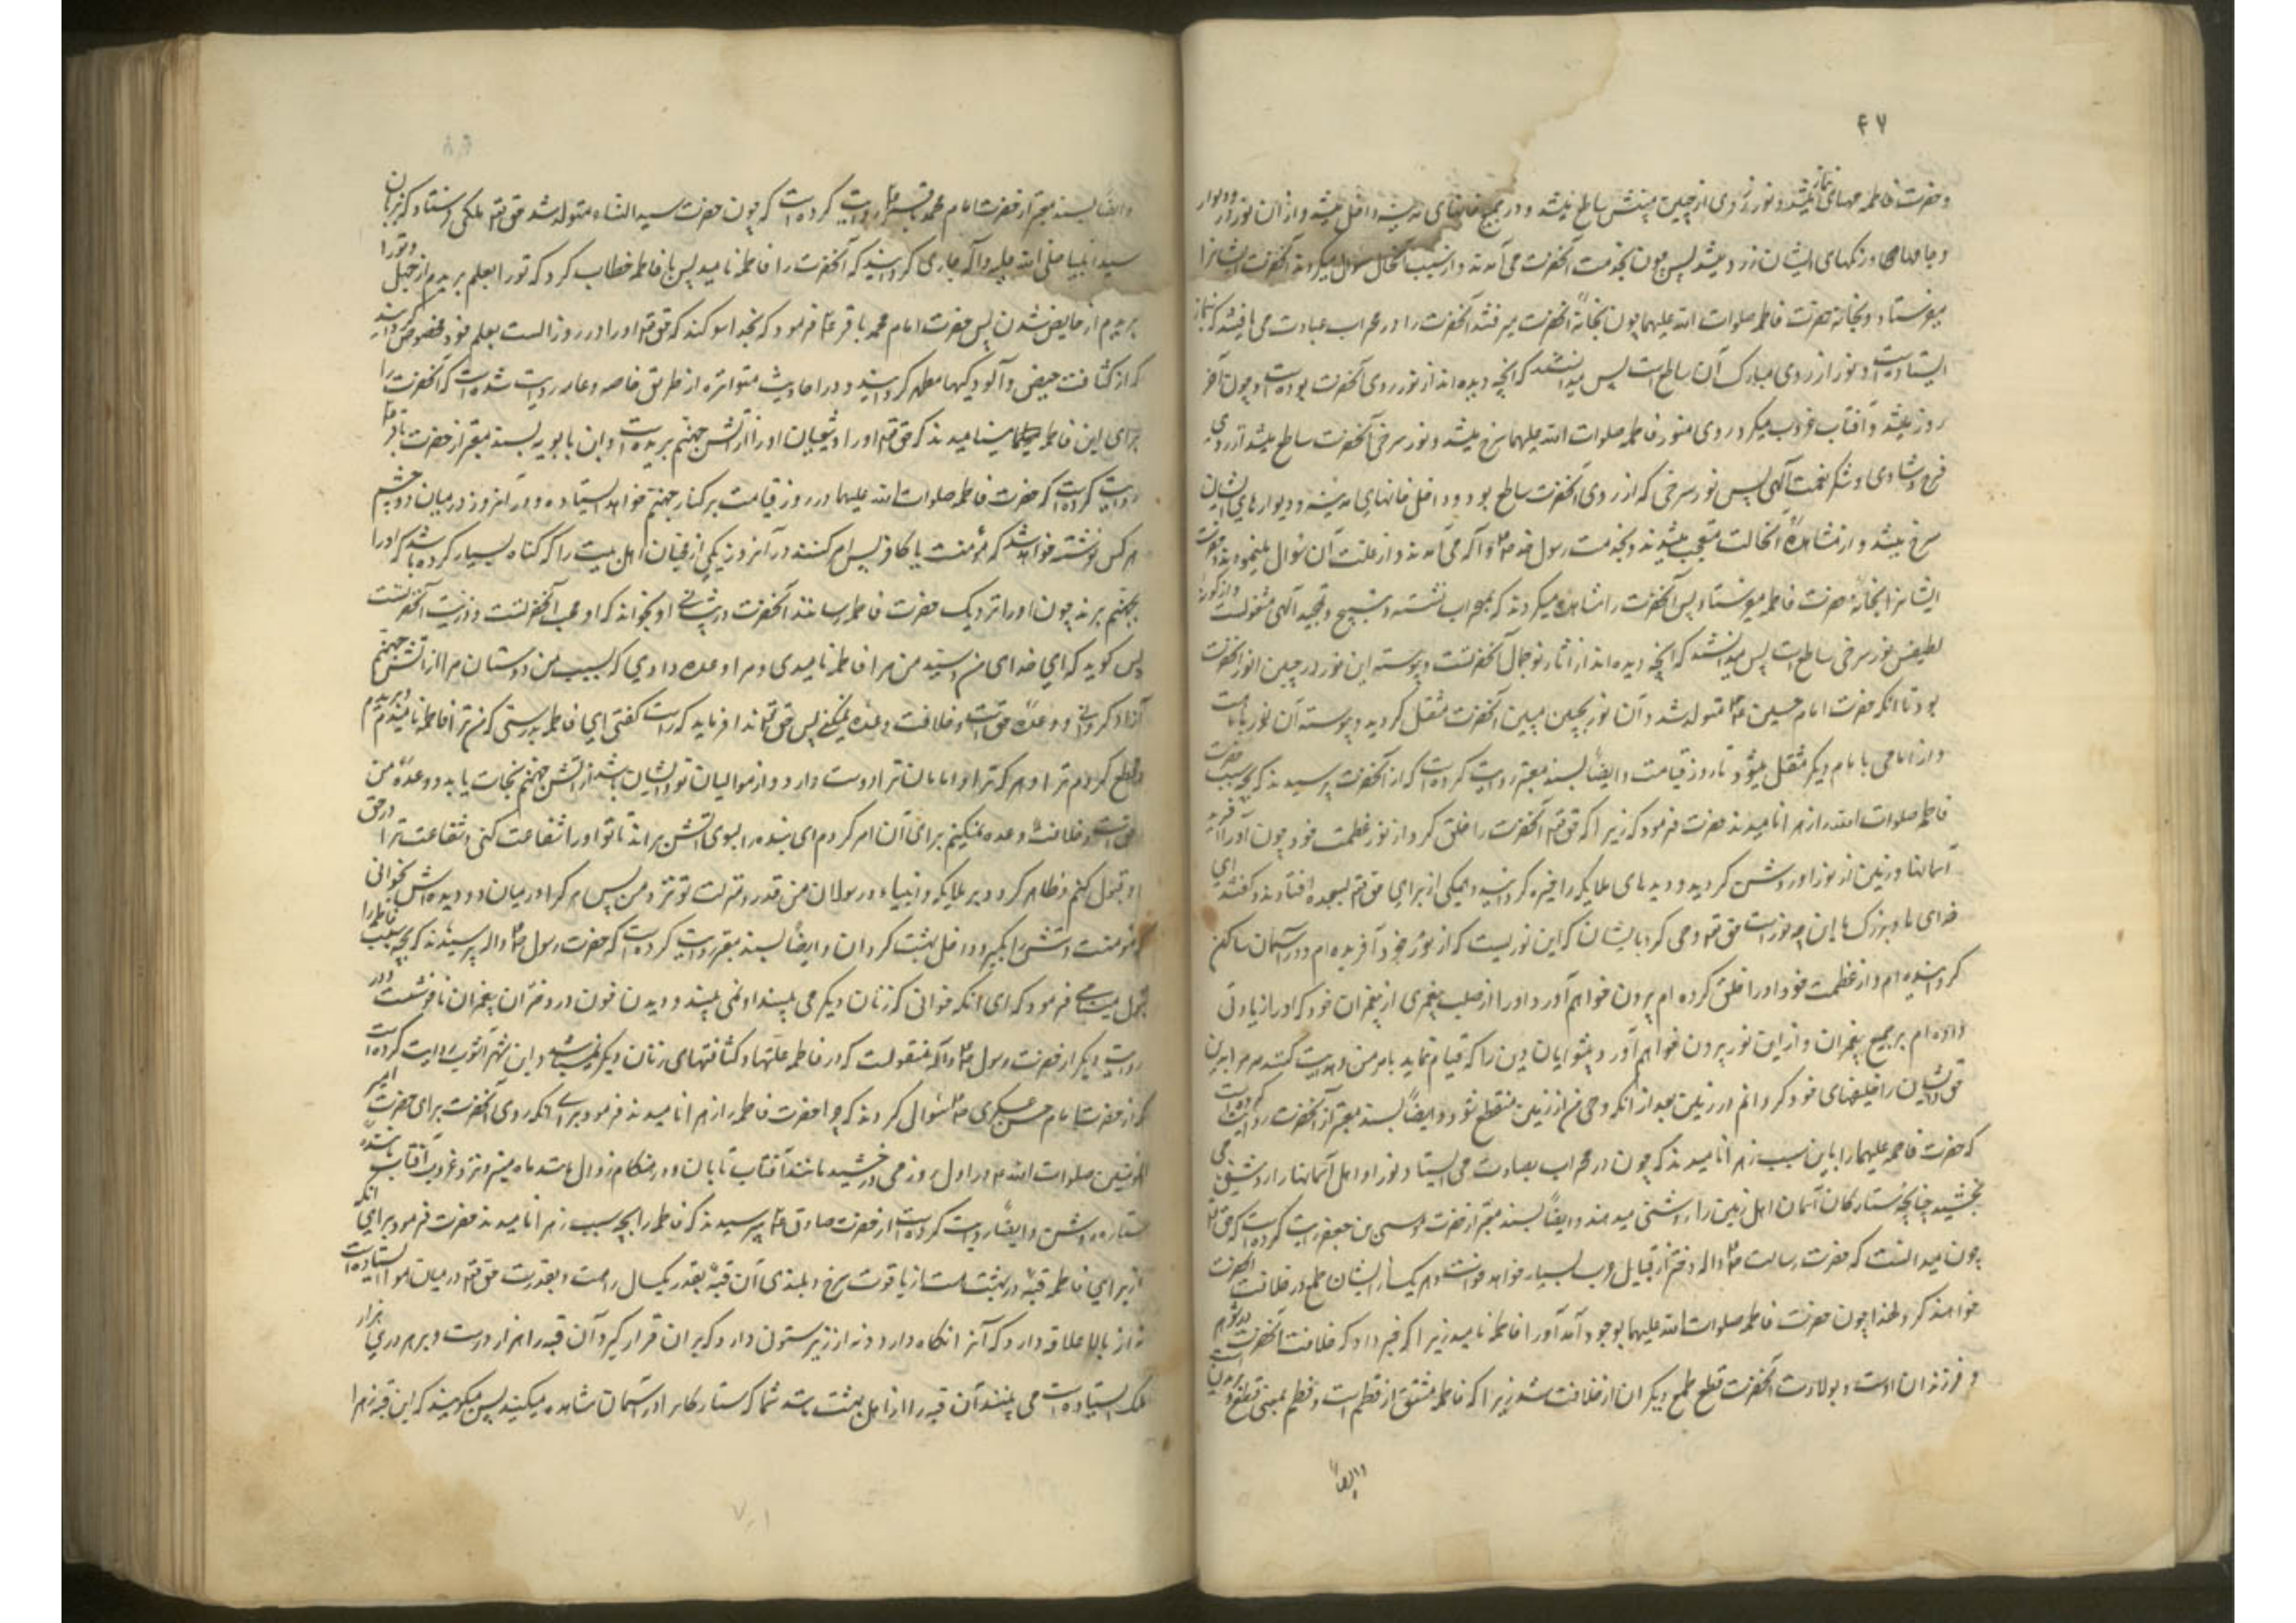 ۴۷
و حضرت فاطمه مهیای نماز میشد و نور زردی از جبین مبینش ساطع میشد و در جمیع خانهای مدینه داخل میشد و از آن نور در و دیوار
و جامها و رنگهای ایشان زرد میشد پس چون بخدمت آنحضرت می آمدند و از سبب آنحال سؤال میکردند آنحضرت ایشانرا
میفرستاد و بخانه حضرت فاطمه صلوات الله علیهما چون بخانهٔ آنحضرت میرفتند آنحضرت را در محراب عبادت می یافتند که بنماز
ایستاده است و نور از روی مبارک آن ساطع است پس میدانستند که آنچه دیده اند از نور روی آنحضرت بوده است و چون آخر
روز میشد و آفتاب غروب میکرد روی منور فاطمه صلوات الله علیهما سرخ میشد و نور سرخی آنحضرت ساطع میشد از روی
فرح و شادی و شکر نعمت آلهی پس نور سرخی که از روی آنحضرت ساطع بود داخل خانهای مدینه و دیوارهای ایشان
سرخ میشد و از مشاهدهٔ آنحالت متعجب میشدند و بخدمت رسول خدا ص و آله می آمدند و از علت آن سؤال مینمودند و حضرت
ایشانرا بخانهٔ حضرت فاطمه میفرستاد پس آنحضرت را مشاهده میکردند که بمحراب نشسته و بتسبیح و تمجید آلهی مشغولست و از
نور سرخی ساطع است پس میدانستند که آنچه دیده اند از آثار نور جمال آنحضرتست و پیوسته این نور در جبین انور آنحضرت
بود تا آنکه حضرت امام حسین ع متولد شد و آن نور بجبین مبین آنحضرت منتقل گردید و پیوسته آن نور با ماست
و از امامی با امام دیگر منتقل میشود تا روز قیامت و ایضاً بسند معتبر روایت کرده است که از آنحضرت پرسیدند که بچه سبب حضرت
فاطمه صلوات الله را زهرا نامیدند حضرت فرمود که زیرا که حق تع آنحضرت را خلق کرد از نور عظمت خود چون او را آفرید
آسمانها و زمین از نور او روشن گردید و دیدهای ملایکه را خیره گردانید و همگی از برای حق تع بسجده افتادند و گفتند ای
خدای ما و بزرگ ما این چه نور است حق تع وحی کرد بایشان که این نوریست که از نور خود آفریده ام و در آسمان ساکن
گردانیده ام و از عظمت خود او را خلق کرده ام بیرون خواهم آورد او را از صلب پیغمبری از پیغمبران خود که او را زیادتی
داده ام بر جمیع پیغمبران و از این نور بیرون خواهم آورد پیشوایان دین را که قیام نماید بامر من و هدایت کنند مردم را بدین
حق و ایشان را خلیفهای خود گردانم در زمین بعد از آنکه وحی من از زمین منقطع شود و ایضاً بسند معتبر از آنحضرت روایت کرده است
که حضرت فاطمه علیهما را باین سبب زهرا نامیدند که چون در محراب بعبادت می ایستاد نور او اهل آسمانها را روشنی می
بخشید چنانچه ستارگان آسمان اهل زمین را روشنی میدهند و ایضاً بسند معتبر از حضرت موسی بن جعفر روایت کرده است که حق تع
چون میدانست که حضرت رسالت ص و اله دختر از قبایل عرب بسیار خواهد خواست و هر یک از ایشان طمع در خلافت آنحضرت
خواهند کرد لهذا چون حضرت فاطمه صلوات الله علیهما بوجود آمد او را فاطمه نامید زیرا که خبر داد که خلافت آنحضرت از
و فرزندان اوست و بولادت آنحضرت قطع طمع دیگران از خلافت شد زیرا که فاطمه مشتق از فطم است و فطم بمعنی قطع و بریدن است
و ایضاً
و ایضاً بسند معتبر از حضرت امام محمد باقر ع روایت کرده است که چون حضرت سیدالنساء متولد شد حق تع ملکی فرستاد که بر زبان
سید انبیا صلی الله علیه و آله جاری گردانید که آنحضرت را فاطمه نامید پس با فاطمه خطاب کرد که تو را بعلم بریدم از جهل و تو را
بریدم از حایض شدن پس حضرت امام محمد باقر ع فرمود که بخدا سوگند که حق تع او را در روز الست بعلم خود مخصوص گردانید
که از کثافت حیض و آلودگیها مطهر گردانید و در احادیث متواتره از طریق خاصه و عامه روایت شده است که آنحضرت را
برای این فاطمه مینامیدند که حق تع او را و شیعیان او را از آتش جهنم بریده است و ابن بابویه بسند معتبر از حضرت باقر ع
روایت کرده است که حضرت فاطمه صلوات الله علیهما در روز قیامت بر کنار جهنم خواهد ایستاد و در آنروز در میان دو چشم
هر کس نوشته خواهد شد که مؤمنست یا کافر پس امر کنند در آنروز یکی از محبان اهل بیت را که گناه بسیار کرده باشد که او را
بجهنم برند چون او را نزدیک حضرت فاطمه رسانند آنحضرت در پیشانی او بخواند که او محب آنحضرتست و ذریت آنحضرتست
پس گوید که ای خدای من و سید من مرا فاطمه نامیدی و مرا وعده دادی که بسبب من دوستان مرا از آتش جهنم
آزاد گردانی و وعدهٔ تو حق است و خلافت وعده نمیکنی پس حق تع ندا فرماید که راست گفتی ای فاطمه بدرستی که من تو را فاطمه نامیدم و بریدم
و قطع کردم ترا و هر که ترا و امامان ترا دوست دارد و از موالیان تو و ایشان باشد از آتش جهنم نجات یابد و وعدهٔ من
حق است و خلافت وعده نمیکنم برای آن امر کردم ای بنده را بسوی آتش برند تا تو او را شفاعت کنی و شفاعت ترا در حق
او قبول کنم و ظاهر گردد بر ملایکه و انبیاء و رسولان من قدر و منزلت تو نزد من پس هر که را در میان دو دیده اش بخوانی
که مؤمنست دستش را بگیر و داخل بهشت گردان و ایضاً بسند معتبر روایت کرده است که حضرت رسول ص واله پرسیدند که بچه سبب فاطمه را
بتول مینامی فرمود که برای آنکه خونی که زنان دیگر می بینند او نمی بیند و دیدن خون در دختران پیغمبران ناخوشست و در
روایت دیگر از حضرت رسول ص و آله منقولست که در فاطمه علتها و کثافتهای زنان دیگر نمیباشد و ابن شهر آشوب روایت کرده است
که از حضرت امام حسن عسکری ص سؤال کردند که چرا حضرت فاطمه را زهرا نامیدند فرمود برای آنکه روی آنحضرت برای حضرت امیر
المؤمنین صلوات الله ع در اول روز می درخشید مانند آفتاب تابان و در هنگام زوال مانند ماه منیر و نزد غروب آفتاب مانند
ستاره روشن و ایضاً روایت کرده است از حضرت صادق ع پرسیدند که فاطمه را بچه سبب زهرا نامیدند حضرت فرمود برای آنکه
از برای فاطمه قبهٔ در بهشت هست از یاقوت سرخ و بلندی آن قبه بقدر یکسال راهست و بقدرت حق تع در میان هوا ایستاده است
نه از بالا علاقه دارد که آنرا نگاه دارد و نه از زیر ستون دارد که بر آن قرار گیرد و آن قبه را هزار در است و بر هر دری هزار
ملک ایستاده است می بینند آن قبه را از اهل بهشت شما که ستارگان را در آسمان مشاهده میکنید پس میگویند که این قبه زهرا